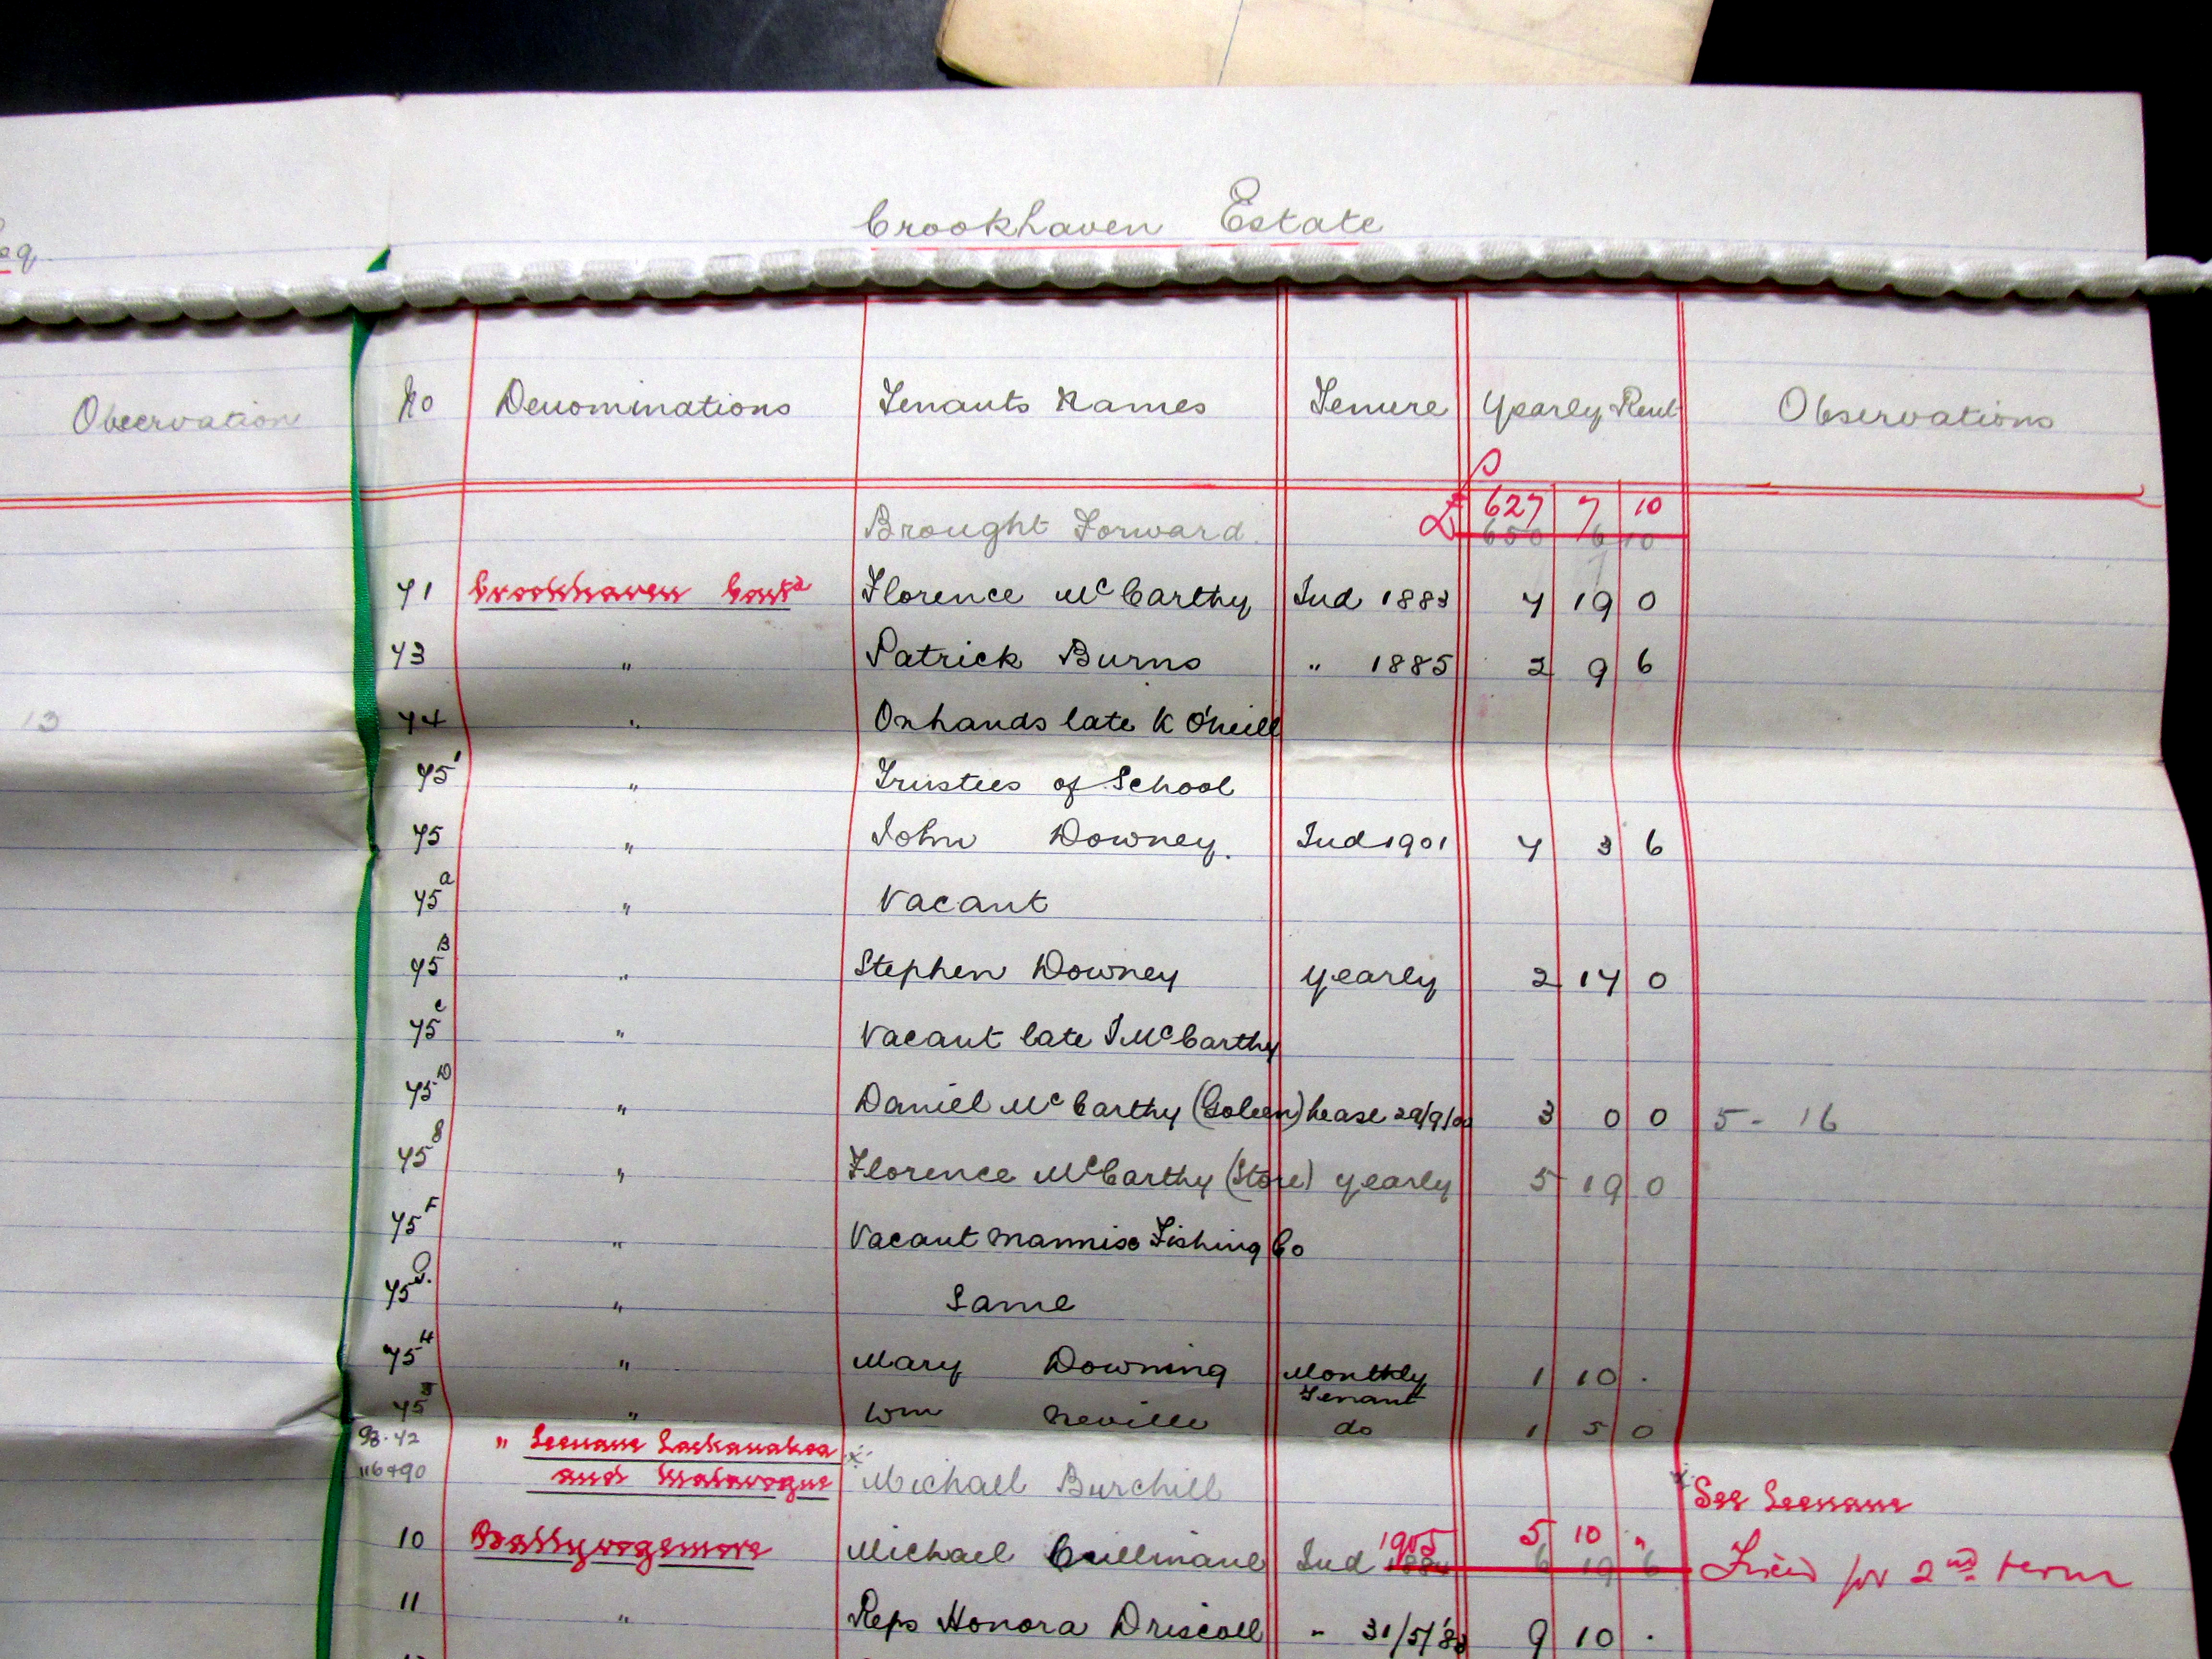 Crookhaven Estate
eq
Observation
No Denominations Tenants Names Tenure Yearly Rent Observations
Brought Forward £ 627 7 10
650 6 10
71 Crookhaven Contd Florence McCarthy Jud 1883 7 19 0
73 " Patrick Burns " 1885 2 9 6
13
74 " Onhands late K O'Neill
75' " Trustees of School
75 " John Downey. Jud 1901 7 3 6
75a " Vacant
75B " Stephen Downey yearly 2 17 0
75c " Vacant late J McCarthy
75D " Daniel McCarthy (Goleen) Lease 29/9/00 3 0 0 5 - 16
75E " Florence McCarthy (Store) yearly 5 19 0
75F " Vacant Mannise Fishing Co
75G. " Same
75H " Mary Downing Monthly Tenant 1 10 .
75J " Wm Neville do 1 5 0
98.42 " Leenane Lackanakea
116+90 and Malavogue Michael Burchill See Leenane
10 Ballyvogemore Michael Cullinane Jud 1905 5 10 " Fixed for 2nd term
1884 6 19 6
11 " Reps Honora Driscoll " 31/5/'83 9 10 .